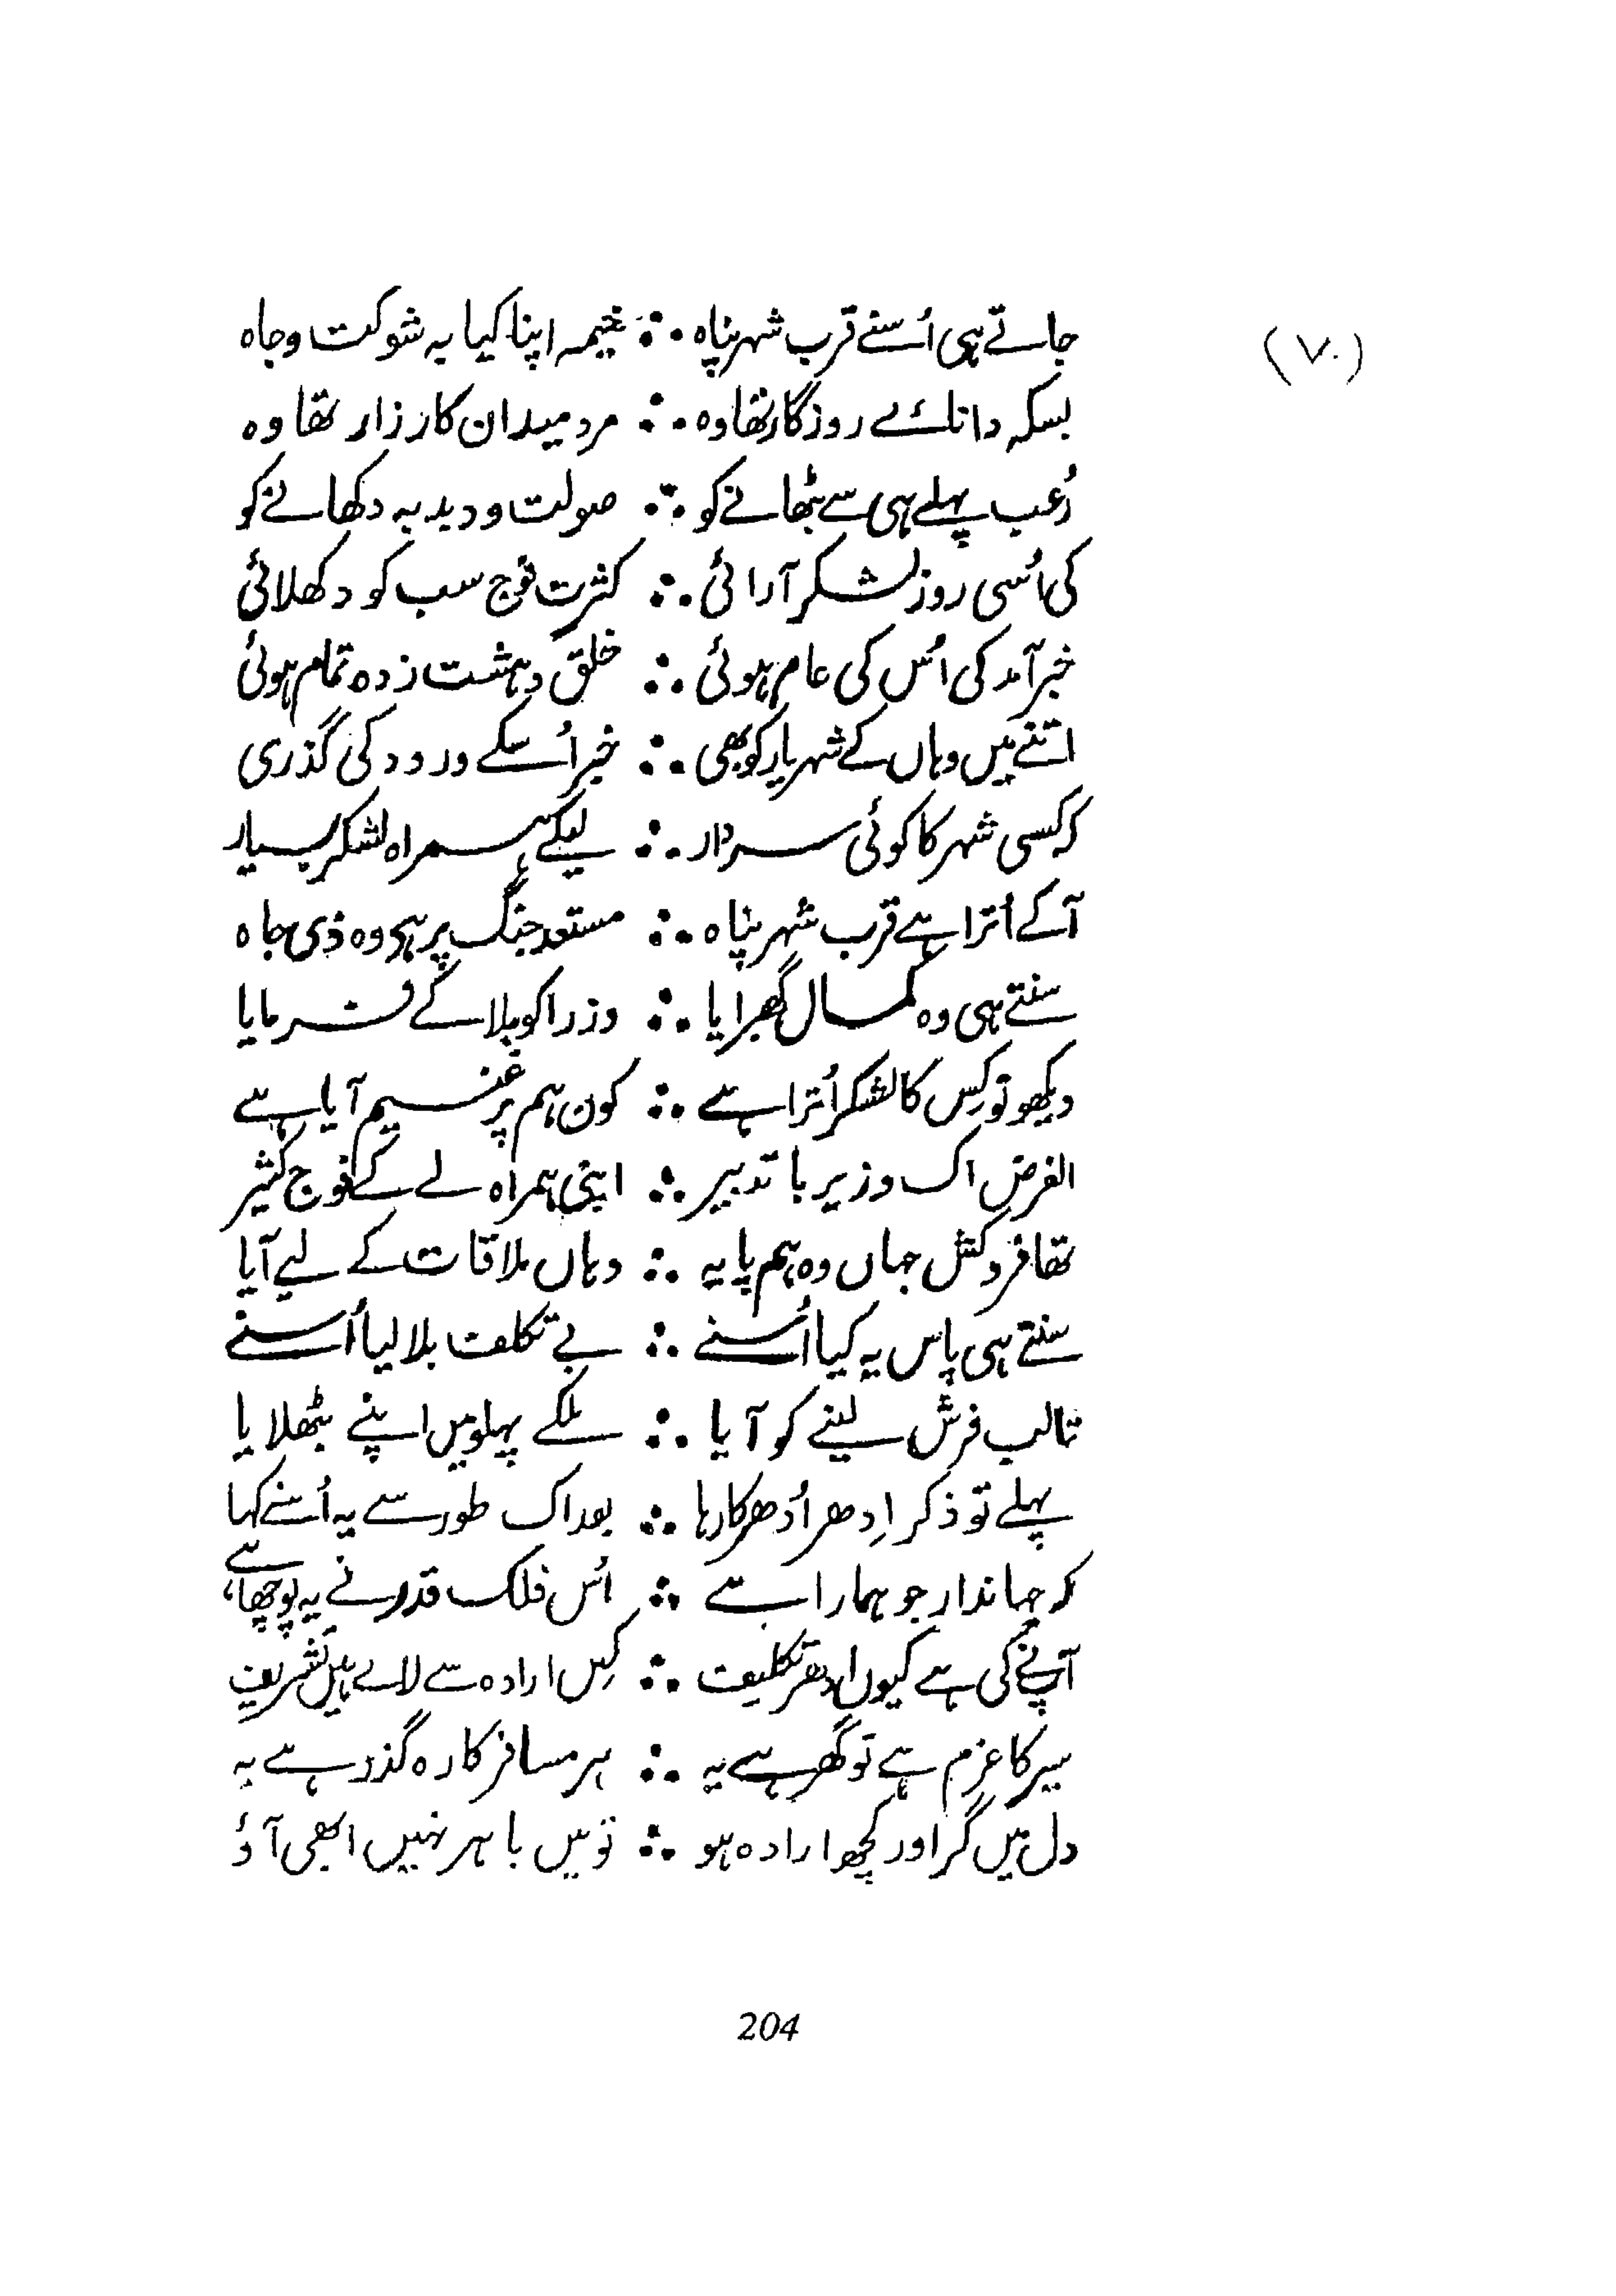 (۷۰)
جاتے ہی اُسنے قرب شہر پناہ ∴ خیمہ اپنا کیا بہ شوکت و جاہ
بسکہ دانائے روزگار تھا وہ ∴ مرد میدان کارزار تھا وہ
رُعب پہلے ہی سے بٹھانے کو ∴ صولت و دبدبہ دکھانے کو
کی اُسی روز لشکر آرائی ∴ کثرت فوج سب کو دکھلائی
خبر آمد کی اُس کی عام ہوئی ∴ خلق دہشت زدہ تمام ہوئی
اتنے میں وہاں کے شہریار کو بھی ∴ خبر اُسکے ورود کی گذری
کہ کسی شہر کا کوئی سردار ∴ لیکے ہمراہ لشکر بسیار
آکے اُترا ہے قرب شہر پناہ ∴ مستعد جنگ پر ہے وہ ذی جاہ
سنتے ہی وہ کمال گھبرایا ∴ وزرا کو بلا کے فرمایا
دیکھو تو کِس کا لشکر اُترا ہے ∴ کون ہم پر غنیم آیا ہے
الغرض اک وزیر با تدبیر ∴ اپنی ہمراہ لے کے فوج کثیر
تھا فرد کشل جہاں وہ ہم پایہ ∴ وہاں ملاقات کے لیے آیا
سنتے ہی پاس یہ کیا اُسنے ∴ بے تکلف بلا لیا اُسنے
تالب فرش لینے کو آیا ∴ ملکے پہلو میں اپنے بٹھلایا
پہلے تو ذکر اِدھر اُدھر کا رہا ∴ بعد اک طور سے یہ اُسنے کہا
کہ جہاندار جو ہمارا ہے ∴ اُس فلک قدر نے یہ پوچھا ہے
آپنے کی ہے کیوں اِدھر تکلیف ∴ کِس ارادہ سے لائے ہیں تشریف
سیر کا عزم ہے تو گھر ہے یہ ∴ ہر مسافر کا رہ گذر ہے یہ
دل میں گر اور کچھ ارادہ ہو ∴ تو میں باہر نہیں ابھی آؤ
204